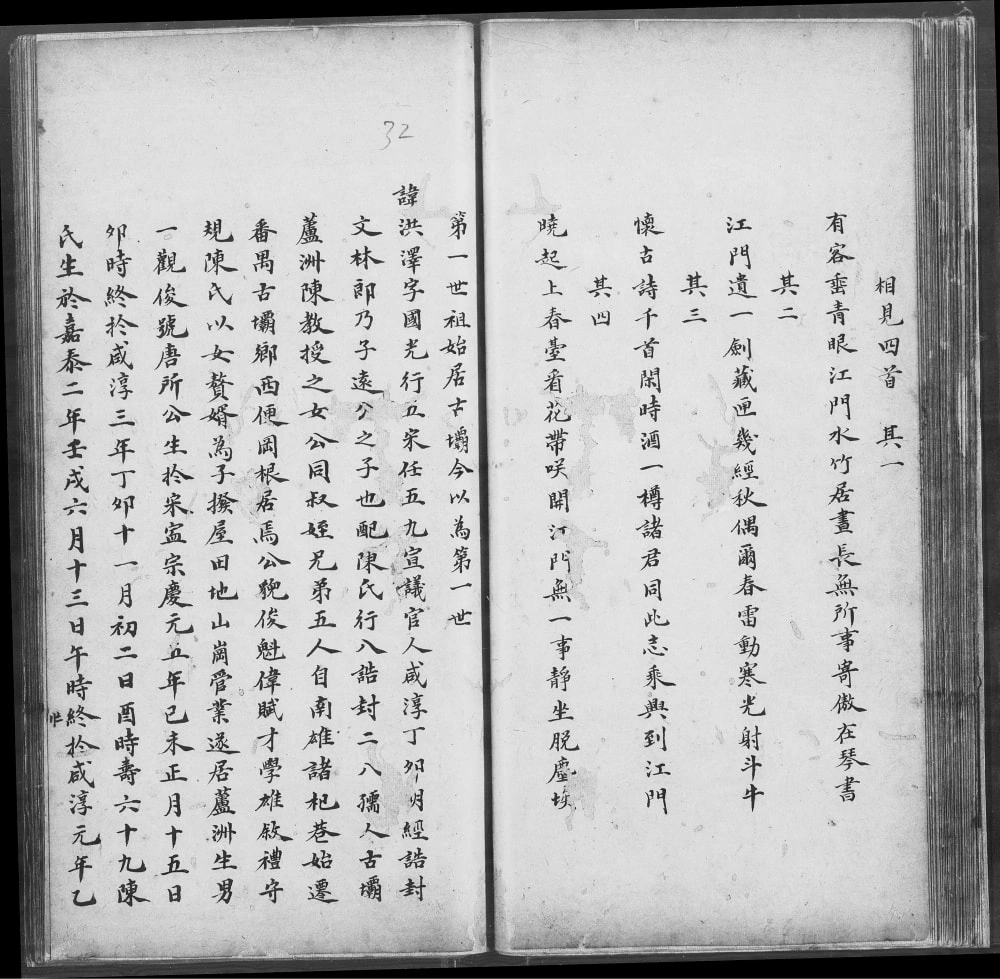 相見四首　其一
有客垂青眼江門水竹居晝長無所事寄傲在琴書
其二
江門遺一劍藏匣幾經秋偶爾春雷動寒光射斗牛
其三
懷古詩千首閑時酒一樽諸君同此志乘興到江門
其四
曉起上春臺看花帶咲開江門無一事靜坐脫塵埃
32
第一世祖始居古壩今以為第一世
諱洪澤字國光行五宋任五九宣議官人咸淳丁卯明經誥封
文林郎乃子遠公之子也配陳氏行八誥封二八孺人古壩
蘆洲陳教授之女公同叔姪兄弟五人自南雄諸杞巷始遷
番禺古壩鄉西便岡根居焉公貌俊魁偉賦才學雄敘禮守
規陳氏以女贅婿為子撥屋田地山崗管業遂居蘆洲生男
一觀俊號唐所公生扵宋寍宗慶元五年已未正月十五日
卯時終扵咸淳三年丁卯十一月初二日酉時壽六十九陳
氏生扵嘉泰二年壬戌六月十三日午時終扵咸淳元年乙